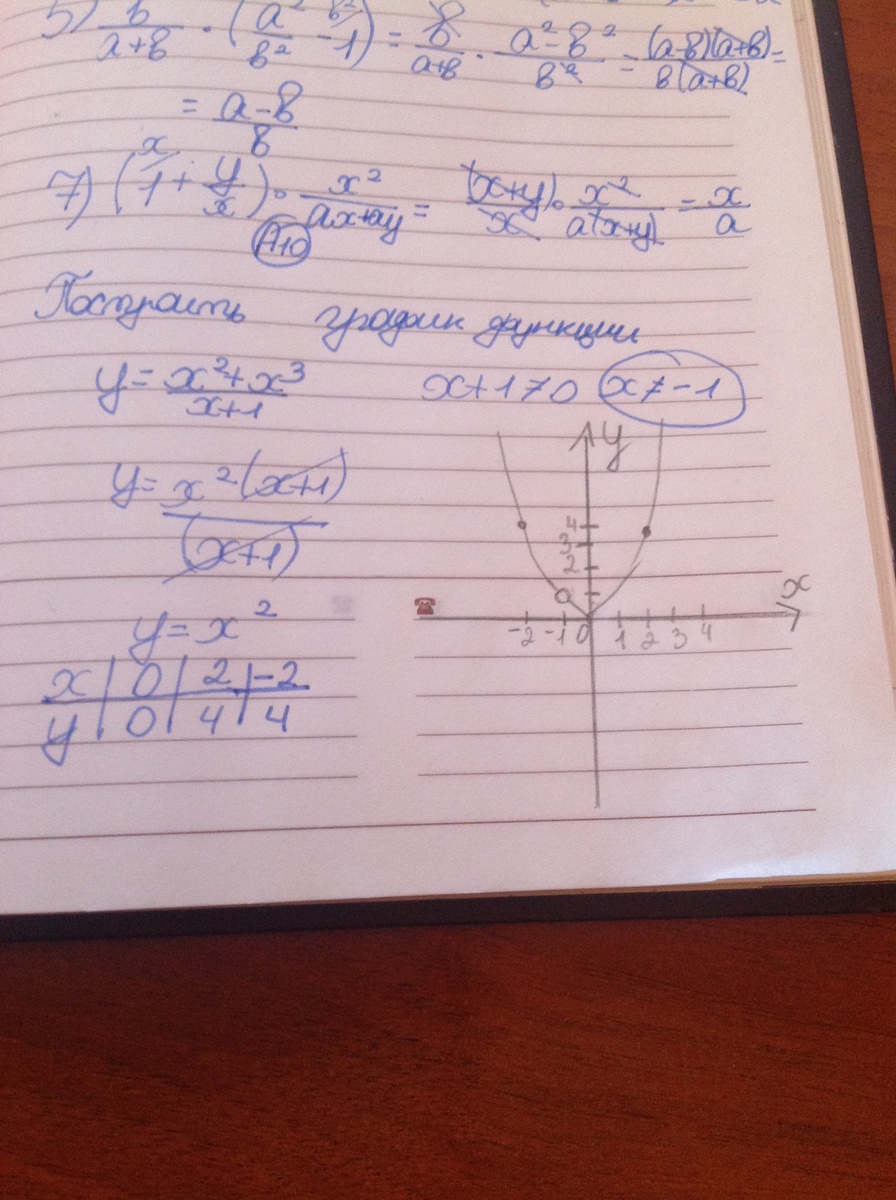 5) b/(a+b) · (a²/b² - 1) = b/(a+b) · (a²-b²)/b² = (a-b)(a+b)/b(a+b) =
= (a-b)/b
7) (1 + y/x) · x²/(ax+ay) = (x+y)/x · x²/a(x+y) = x/a
А10
Построить график функции
y = (x²+x³)/(x+1) x+1≠0 x≠-1
y = x²(x+1)/(x+1)
y = x²
x | 0 | 2 | -2
y | 0 | 4 | 4
y
4
3
2
x
-2 -1 0 1 2 3 4